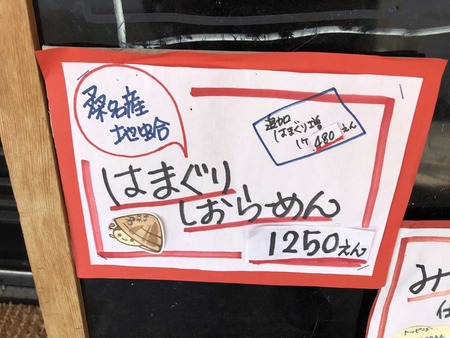 桑名産
地蛤
はまぐり増
480えん
はまぐり
しおらーめん
1250えん
み